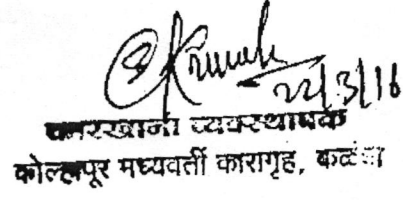 22/3/16
व्यवस्थापक
कोल्हापूर मध्यवर्ती कारागृह, कळंबा